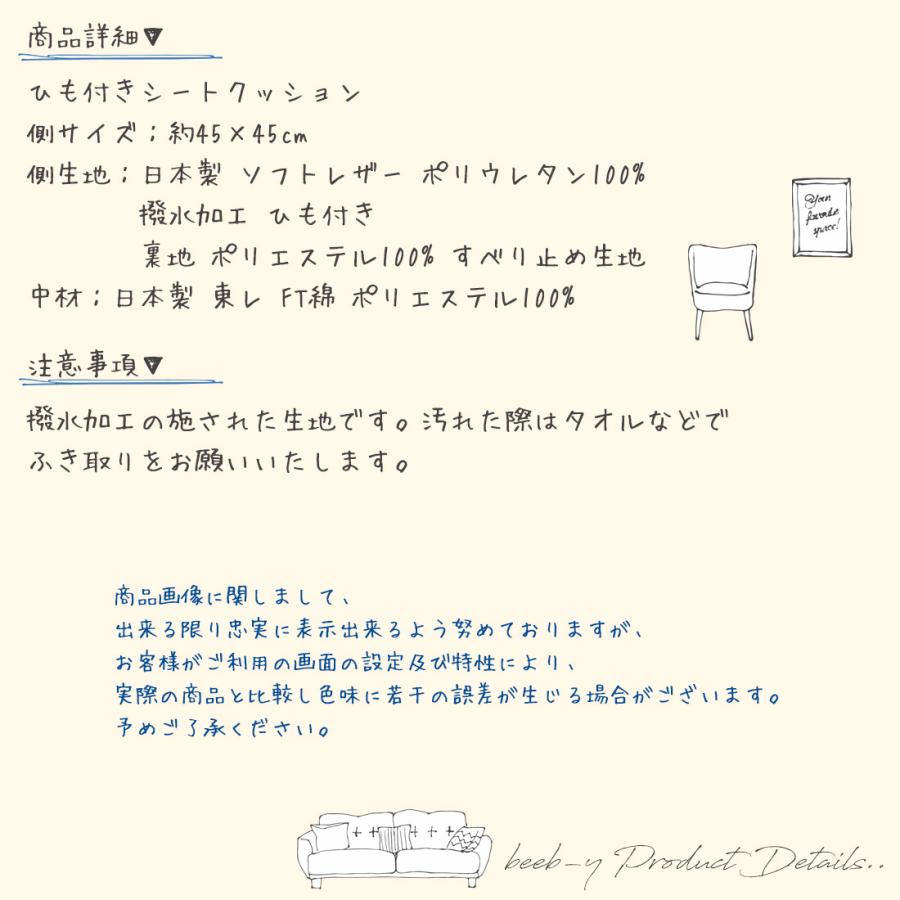 商品詳細▼
ひも付きシートクッション
側サイズ；約45×45cm
側生地；日本製 ソフトレザー ポリウレタン100%
撥水加工 ひも付き
裏地 ポリエステル100% すべり止め生地
中材；日本製 東レ FT綿 ポリエステル100%
Your
favorite
space!
注意事項▼
撥水加工の施された生地です。汚れた際はタオルなどで
ふき取りをお願いいたします。
商品画像に関しまして、
出来る限り忠実に表示出来るよう努めておりますが、
お客様がご利用の画面の設定及び特性により、
実際の商品と比較し色味に若干の誤差が生じる場合がございます。
予めご了承ください。
beeb-y Product Details..